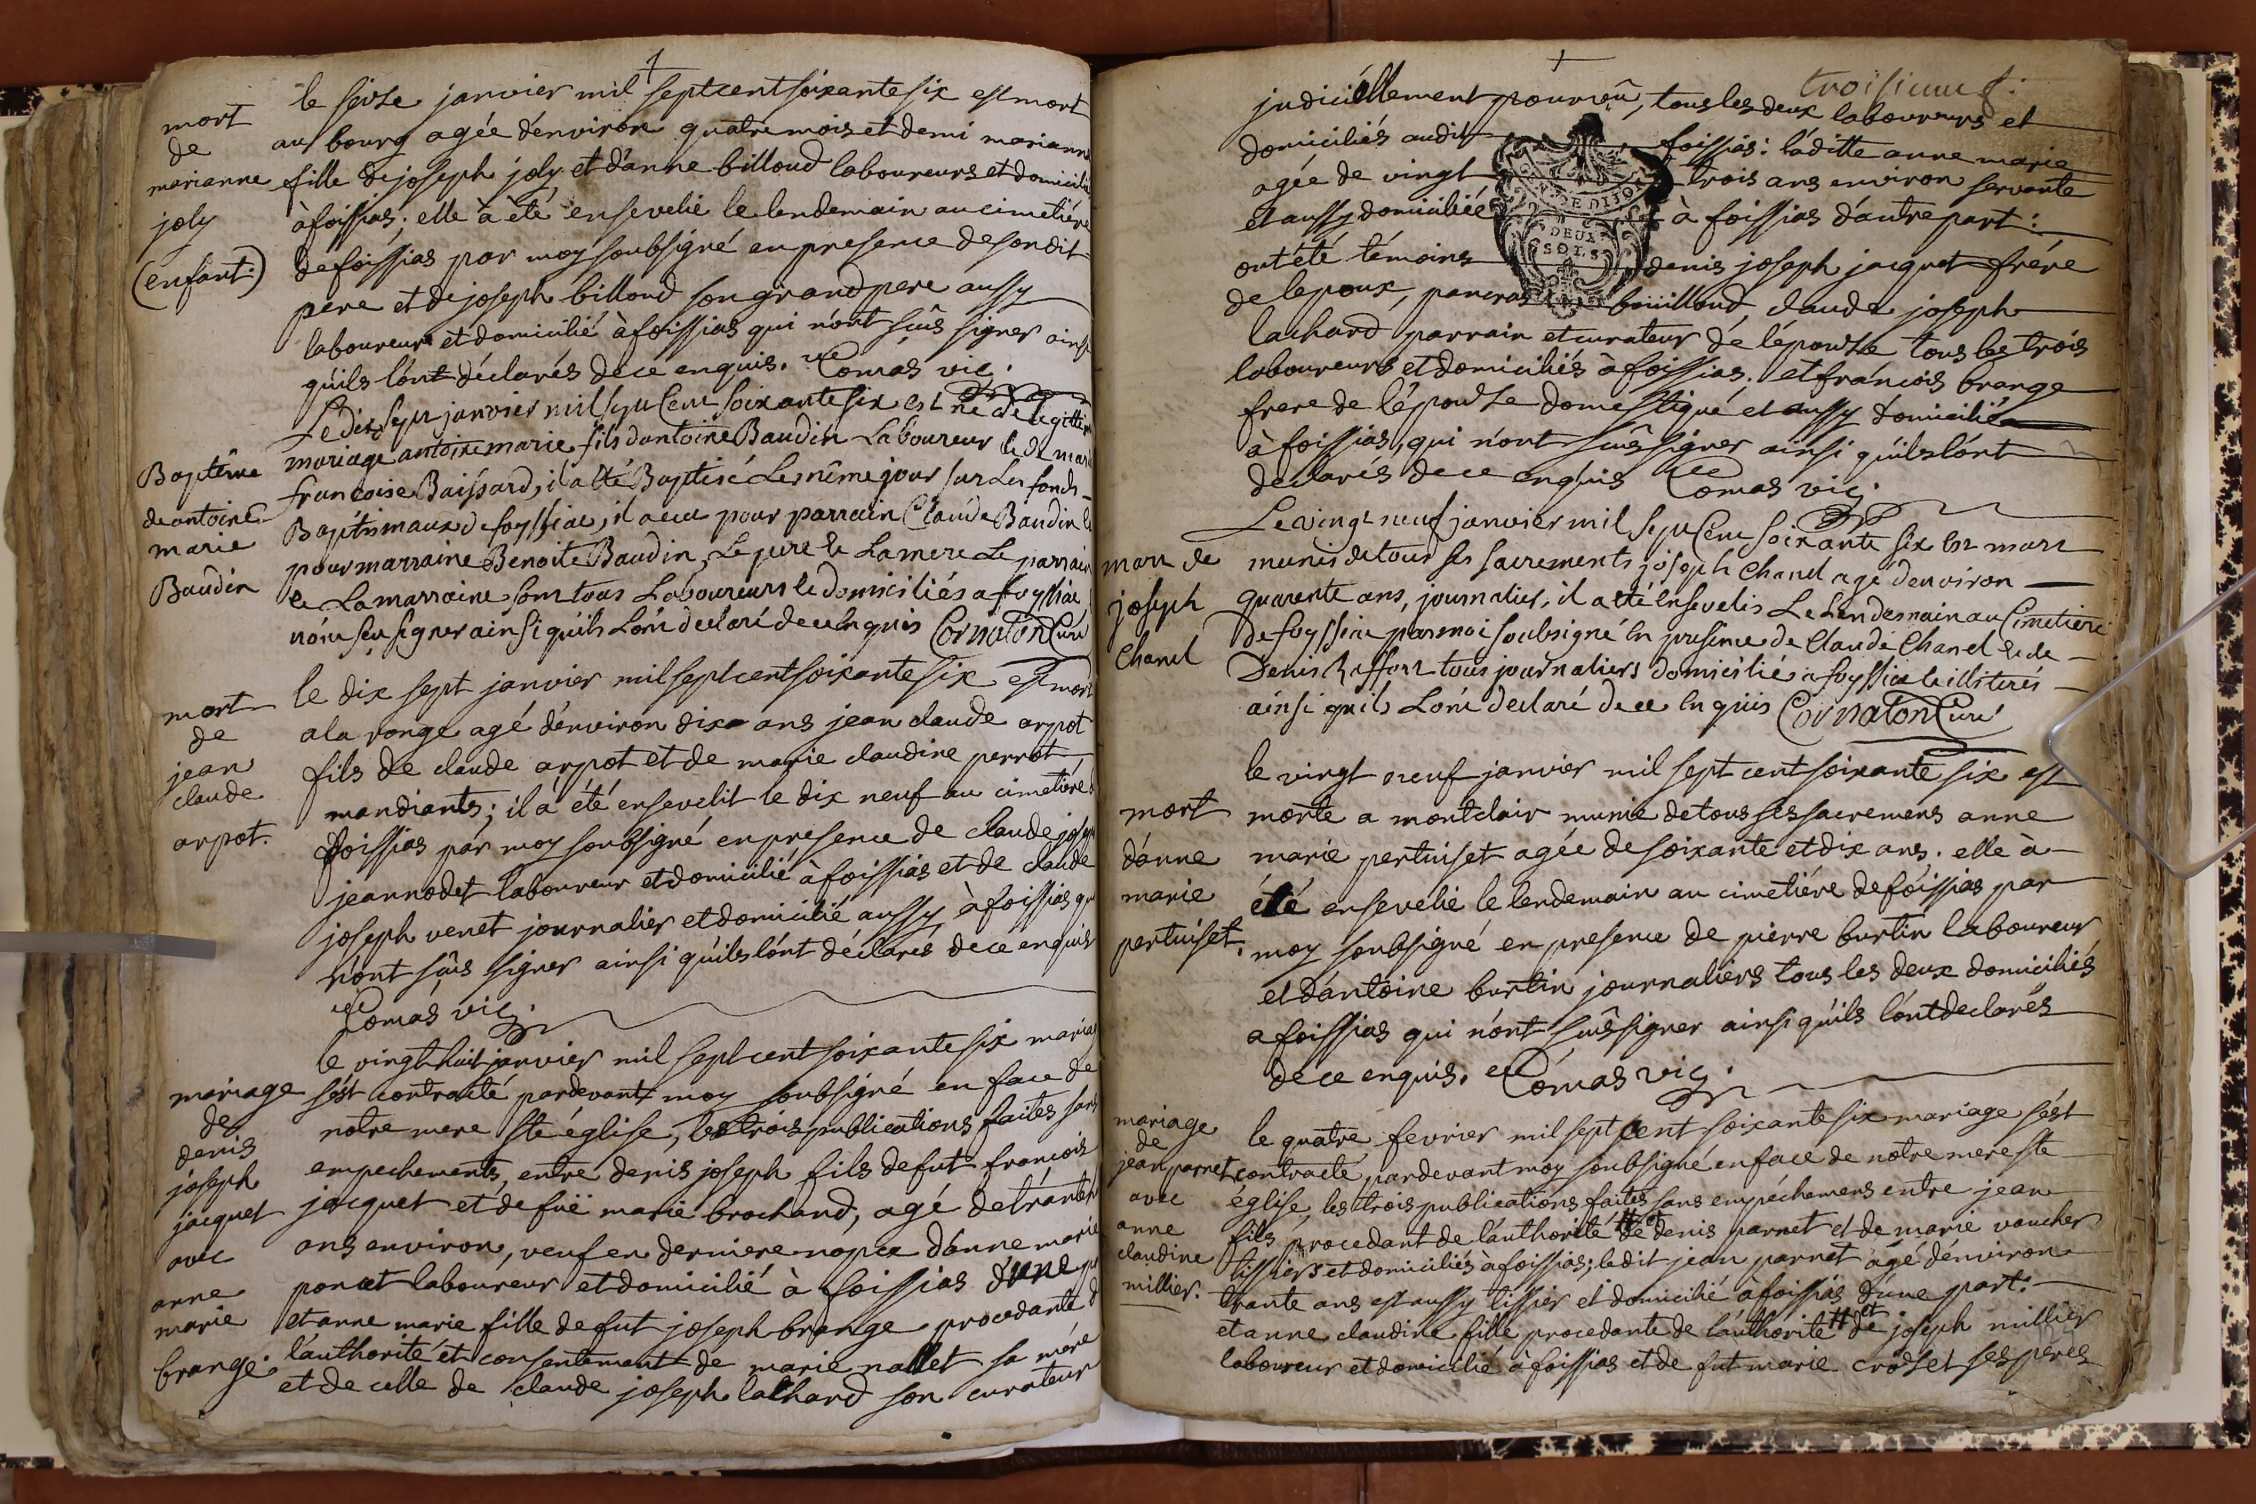 mort
de
marianne
joly
(enfant.)
le seize janvier mil septcent soixante six est mort
au bourg agée d'environ quatre mois et demi marianne
fille de joseph joly et d'anne billoud laboureurs et domiciliés
à foissias; elle à été ensevelie le lendemain au cimetiére
de foissias par moy soubsigné en presence de son dit
pere et de joseph billoud son grand pere aussy
laboureurs et domicilié à foissias qui n'ont sçûs signer ainsi
quils l'ónt déclarés de ce enquis. Comas vic.
Baptême
de antoine
marie
Baudin
Le dix sept janvier mil sept Cent soixante six est né de legittime
mariage antoine marie fils d'antoine Baudin Laboureur et de marie
francoise Baissard, il a été Baptisé Le même jour sur Les fonds
Baptismaux de foyssiac, il a eu pour parrain Claude Baudin et
pour marraine Benoite Baudin, Le pere et La mere Le parrain
et La marraine sont tous Laboureurs et domiciliés a foyssiac
n'ont sçu signer ainsi quils L'ont declaré de ce enquis Cornaton Curé
mort
de
jean
claude
arpot.
le dix sept janvier mil septcent soixante six est mort
a la ronge agé d'environ dix ans jean claude arpot
fils de claude arpot et de marie claudine perrot
mandiants; il à été ensevelit le dix neuf au cimetiére de
foissias par moy soubsigné en presence de claude joseph
jeannodet laboureur et domicilié à foissias et de claude
joseph venet journalier et domicilié aussy à foissias qui
n'ont sçûs signer ainsi quils l'ónt déclarés de ce enquis
Comas vic.
mariage
de
denis
joseph
jacquet
avec
anne
marie
brange.
le vingt huit janvier mil septcent soixante six mariage
s'ést contracté pardevant moy soubsigné en face de
notre mere ste église, les trois publications faites sans
empechements, entre denis joseph fils de fut francois
jacquet et de fuë marie brochand, agé de trante
ans environ, veuf en derniere nopce d'anne marie
poncet laboureur et domicilié à foissias d'une part
et anne marie fille de fut joseph brange procedante de
l'authorité et consentement de marie nallet sa mére
et de celle de claude joseph lachard son curateur
troisieme f.
judiciéllement pourvû, tous les deux laboureurs et
domiciliés audit foissias: laditte anne marie
agée de vingt trois ans environ servante
et aussy domiciliée à foissias d'autre part:
DEUX
SOLS
ont été témoins denis joseph jacquet frére
de lepoux, pancras bouilloud, claude joseph
lachard parrain et curateur de l'épouse tous les trois
laboureurs et domiciliés à foissias. et francois brange
frere de l'épouse domestique et aussy domicilié
à foissias, qui n'ont sçûs signer ainsi quils l'ónt
declarés de ce enquis Comas vic.
mort de
joseph
Chanel
Le vingt neuf janvier mil sept Cent soixante six est mort
munis de tous ses sacrements joseph Chanel agé d'environ
quarente ans, journalier, il a été Ensevelis Le Lendemain au Cimetiere
de foyssiac par moi soubsigné En presence de Claude Chanel et de
Denis tous journaliers domiciliés a foyssiac et illiterés
ainsi quils L'ont declaré de ce Enquis Cornaton Curé
mort
d'anne
marie
pertuiset.
le vingt neuf janvier mil sept cent soixante six est
morte a montclair munie de tous ses sacremens anne
marie pertuiset agée de soixante et dix ans. elle à
été ensevelie le lendemain au cimetiére de foissias par
moy soubsigné en presence de pierre burtin laboureur
et d'antoine burtin journaliers tous les deux domiciliés
a foissias qui n'ont sçûs signer ainsi quils l'ónt declarés
de ce enquis. Comas vic.
mariage
de
jean parnet
avec
anne
claudine
millier.
le quatre fevrier mil sept cent soixante six mariage s'ést
contracté pardevant moy soubsigné en face de notre mere ste
église, les trois publications faites sans empéchemens entre jean
fils procedant de l'authorité # et de denis parnet et de marie vaucher
tissiers et domiciliés à foissias; ledit jean parnet agé d'environ
trante ans est aussy tissier et domicilié à foissias d'une part:
et anne claudine fille procedante de l'authorité # et de joseph millier
laboureur et domicilié à foissias et de fut marie croset ses peres